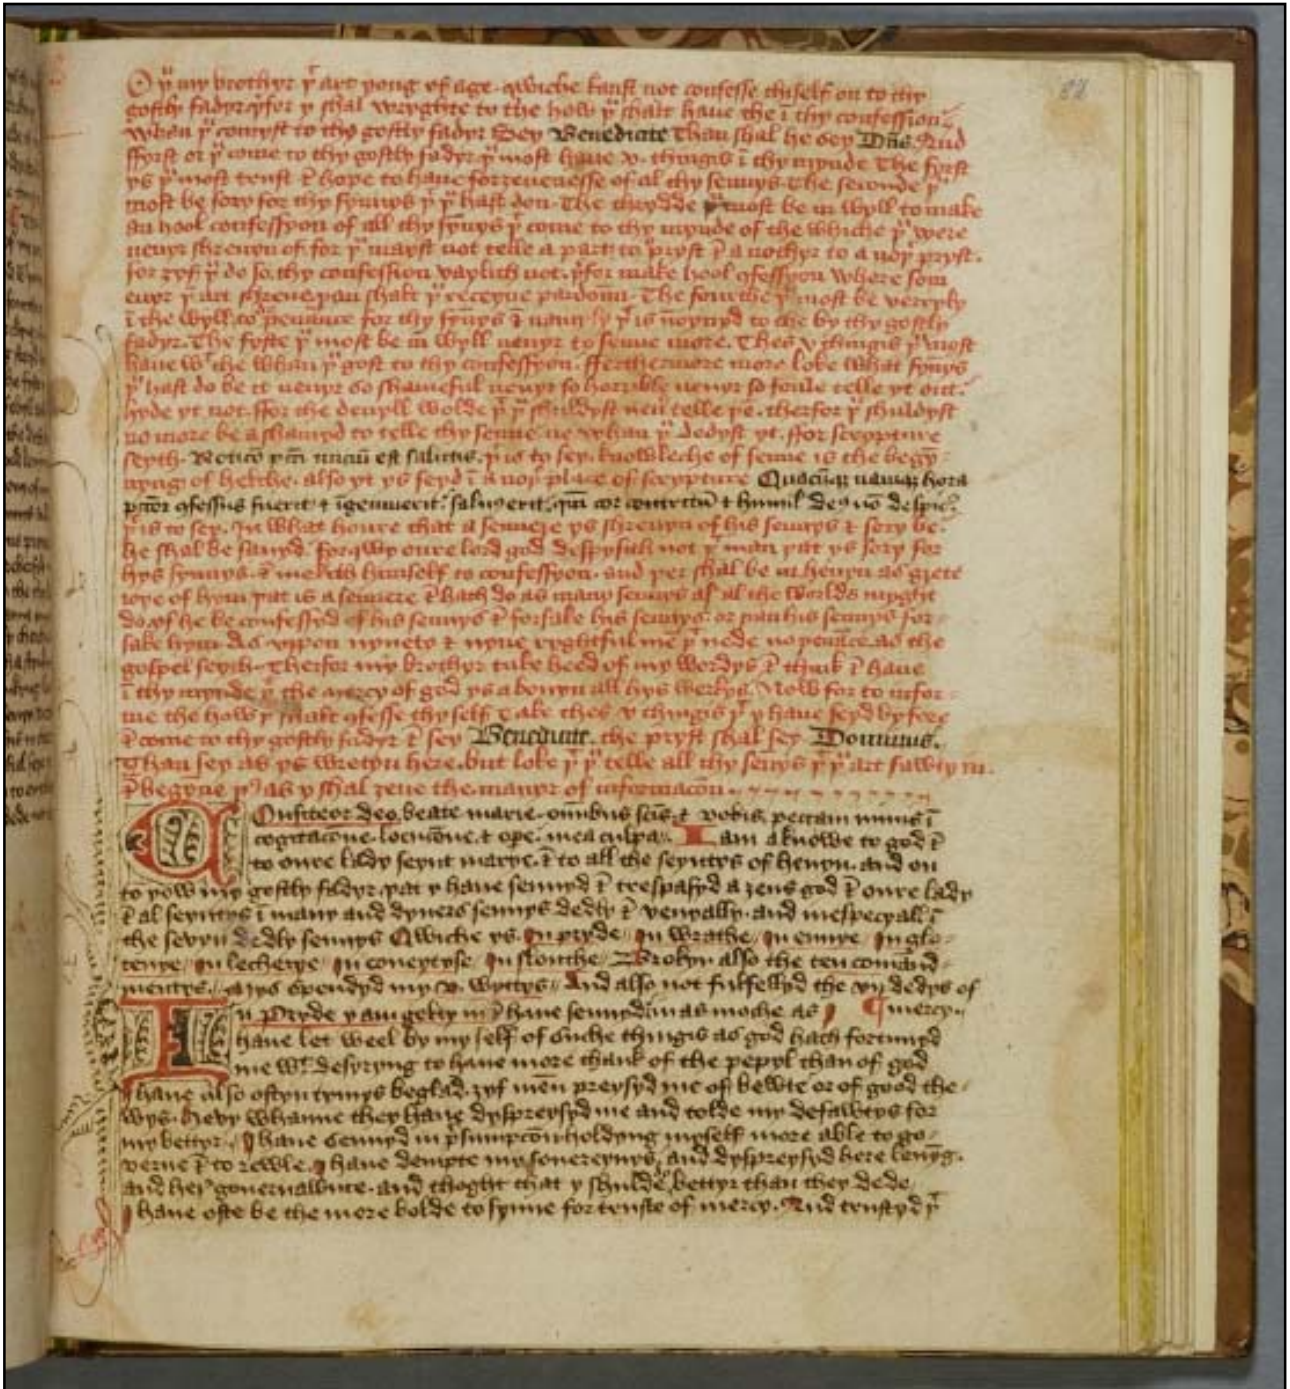 O þu my brothyr þt art yong of age. qwiche kanst not confesse thiself on to thy
gostly fadyr. þfor y schal wryghte to the how þu schalt have the ī thy confession.
Whan þu comyst to thy gostly fadyr Sey Benedicite Than shal he sey Dñs. And
ffyrst or þu come to thy gostly fadyr þu most have v. thingis ī thy mynde The fyrst
ys þu most trust & hope to have forzevenesse of al thy sennys. The seconde þu
most be sory for thy synnys þt þu hast don. The thrydde þu most be in wyll to make
an hool confessyon of all thy synnys þt come to thy mynde of the whiche þu were
nevyr shrevyn of. for þu mayst not telle a part to pryst & a nothyr to a noþr pryst.
for zyf þu do so. thy confession vaylith not. þfor make hool ꝯfessyon where som
evyr þu art schreve. þan shalt þu receyve pardoun. The fourthe þu most be verryly
ī the wyll. to penance for thy synnys & namly þt is īioynyd to the by thy gostly
fadyr. The fyfte þu most be in wyll nevyr to senne more. Thes v thingis þu most
have wt the whan þu gost to thy confessyon. fferthermore more loke what synnys
þu hast do be it nevyr so shameful nevyr so horrible nevyr so foule telle yt out.
hyde yt not. ffor the devyll wolde þt þu schuldyst nevr telle þe. therfor þu schuldyst
no more be aschamyd to telle thy senne ne whan þu dedyst yt. ffor scrypture
seyth. Noticō pcti iniciū est salutis. þt is to sey. knowleche of senne is the begy
nyngi of helthe. also yt ys seyd ī a noþr place of scrypture Quacūqꝫ namqꝫ hora
pctor ꝯfessus fuerit & īgemuerit. salvꝰ erit. qm̄ cor contritū & humil deꝰ nō despic
þt is to sey. In what houre that a sennere ys shrevyn of his sennys & sory be
he shal be savyd. For qwy oure lord god dispysith not þt man þat ys sory for
hys synnys. & mekith himself to confessyon. and þer shal be in hevyn as grete
ioye of hym þat is a sennere & hath do as many sennys as al the worlds myght
do. yf he be confessyd of his sennys & forsake his sennys. or þan his sennys for
sake hym. As vppon nynety & nyne ryghtful mē þt nede no penāce. as the
gospel seyth. Therfor my brothyr take heed of my wordys. & think & have
ī thy mynde þt the mercy of god ys abovyn all hys werkys. Now for to infor
me the how þu schalt ꝯfesse thy self Take thes v thingis þt y have seyd byfore
& come to thy gostly fadyr & sey Benedicite. the pryst shal sey Dominus.
Than sey as ys wretyn here. but loke þt þu telle all thy senys þt þu art fawty in.
& begyne þꝰ as y schal zeve the maner of informacōn
Confiteor deo. beate marie. omībus scīs. & vobis. peccavi nimis ī
cogitacōne. locucōne. & ope. mea culpa. I am aknowe to god &
to oure lady seynt marye. & to all the seyntys of hevyn. and on
to yow my gostly fadyr. þat y have sennyd & trespasyd a zens god & oure lady
& al seyntys ī many and dyvers sennys. dedly & venyally. and inespecyall ī
the sevyn dedly sennys Qwiche ys. In pryde. In wrathe. In envye. In glo
tenye. In lecherye. In coveytyse. In slouthe. Brokyn also the ten comand
mentys. Mys spendyd my v. wyttys. And also not fulfellyd the vij dedys of
In Pryde y am gelty in & have sennyd. in as moche as I ¶ mercy.
have let weel by my self of suche thingis as god hath fortunyd
me wt. desyryng to have more thank of the pepyl than of god
I have also oftyn tymys beglad. zyf men preysyd me of bewte or of good the
wys. Hevy whanne they have dyspreysyd me and tolde my defawtys for
my bettyr. I have sennyd in psumpcōn. holdyng myself more able to go
verne & to rewle. I have dempte my sovereynys, and dyspreysyd here levyg.
and her governaunce. and thoght that y schulde bettyr than they dede
I have ofte be the more bolde to synne for truste of mercy. And trustyd þt